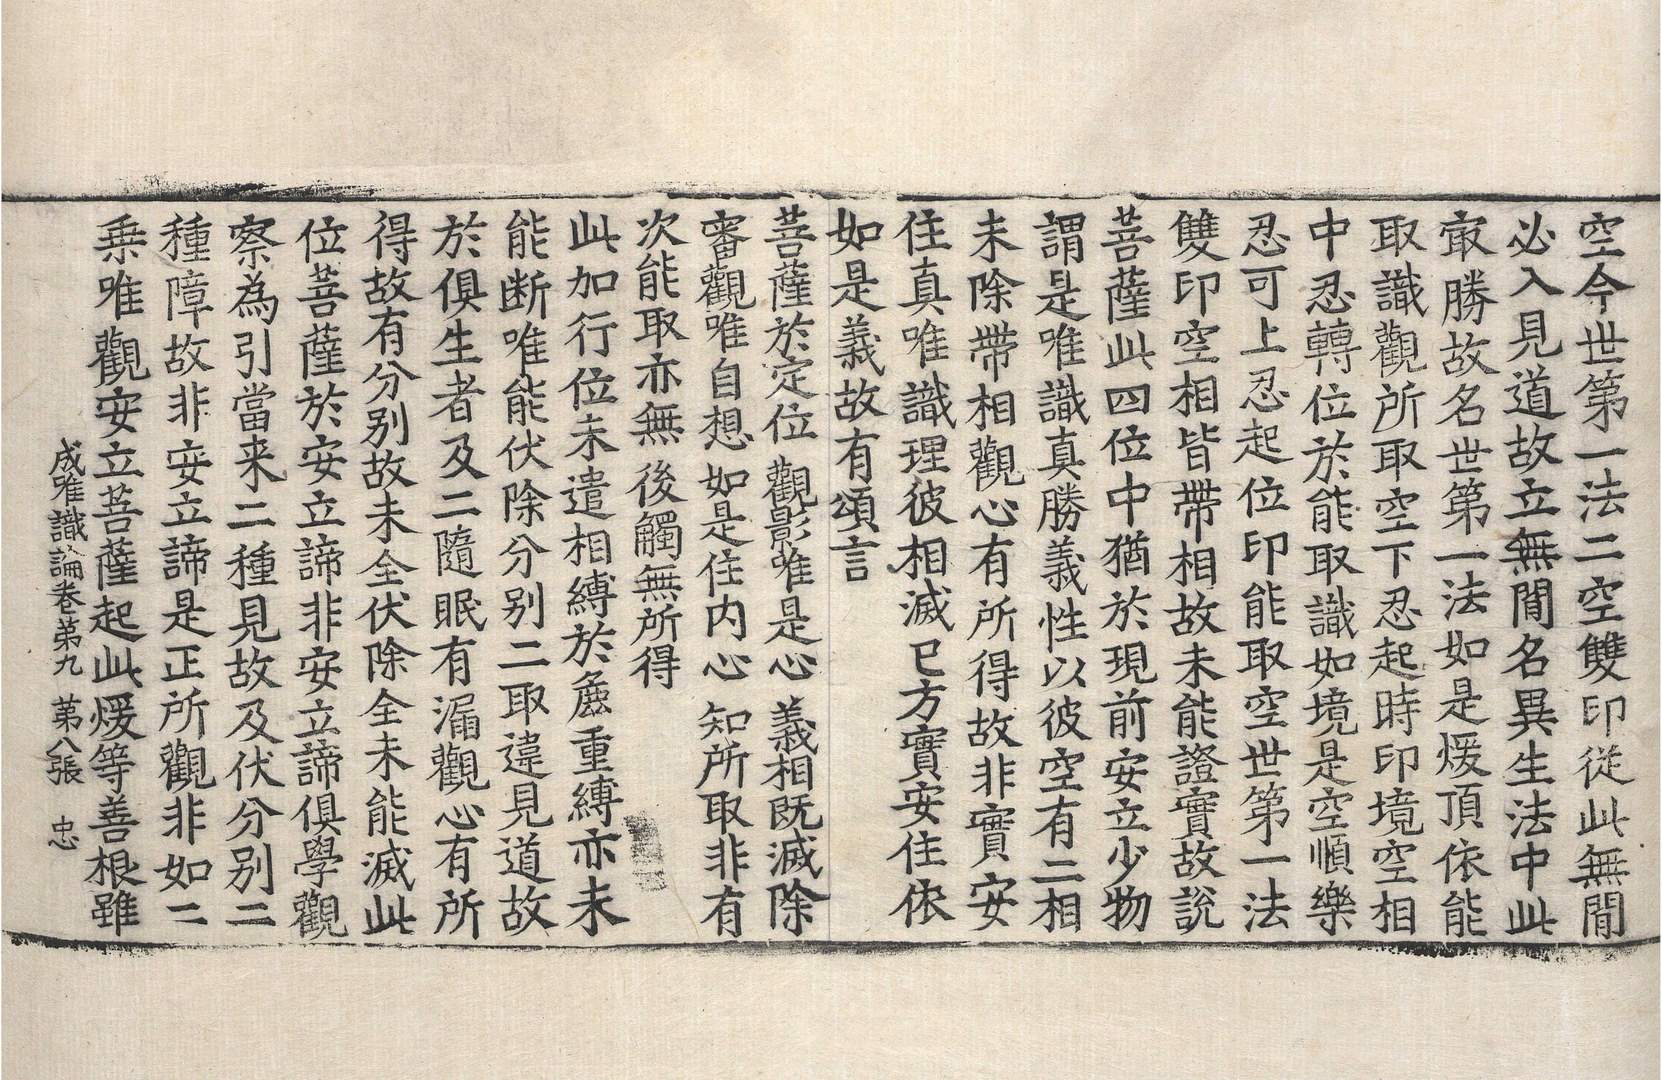 空今世第一法二空雙印從此無閒
必入見道故立無閒名異生法中此
㝡勝故名世第一法如是煖頂依能
取識觀所取空下忍起時印境空相
中忍轉位於能取識如境是空順樂
忍可上忍起位印能取空世第一法
雙印空相皆帶相故未能證實故說
菩薩此四位中猶於現前安立少物
謂是唯識真勝義性以彼空有二相
未除帶相觀心有所得故非實安
住真唯識理彼相滅已方實安住依
如是義故有頌言
菩薩於定位 觀影唯是心 義相既滅除
審觀唯自想 如是住內心 知所取非有
次能取亦無 後觸無所得
此加行位未遣相縛於麁重縛亦未
能断唯能伏除分别二取違見道故
於俱生者及二隨眠有漏觀心有所
得故有分別故未全伏除全未能滅此
位菩薩於安立諦非安立諦俱學觀
察為引當来二種見故及伏分别二
種障故非安立諦是正所觀非如二
乘唯觀安立菩薩起此煖等善根雖
成唯識論卷第九 第八張 忠